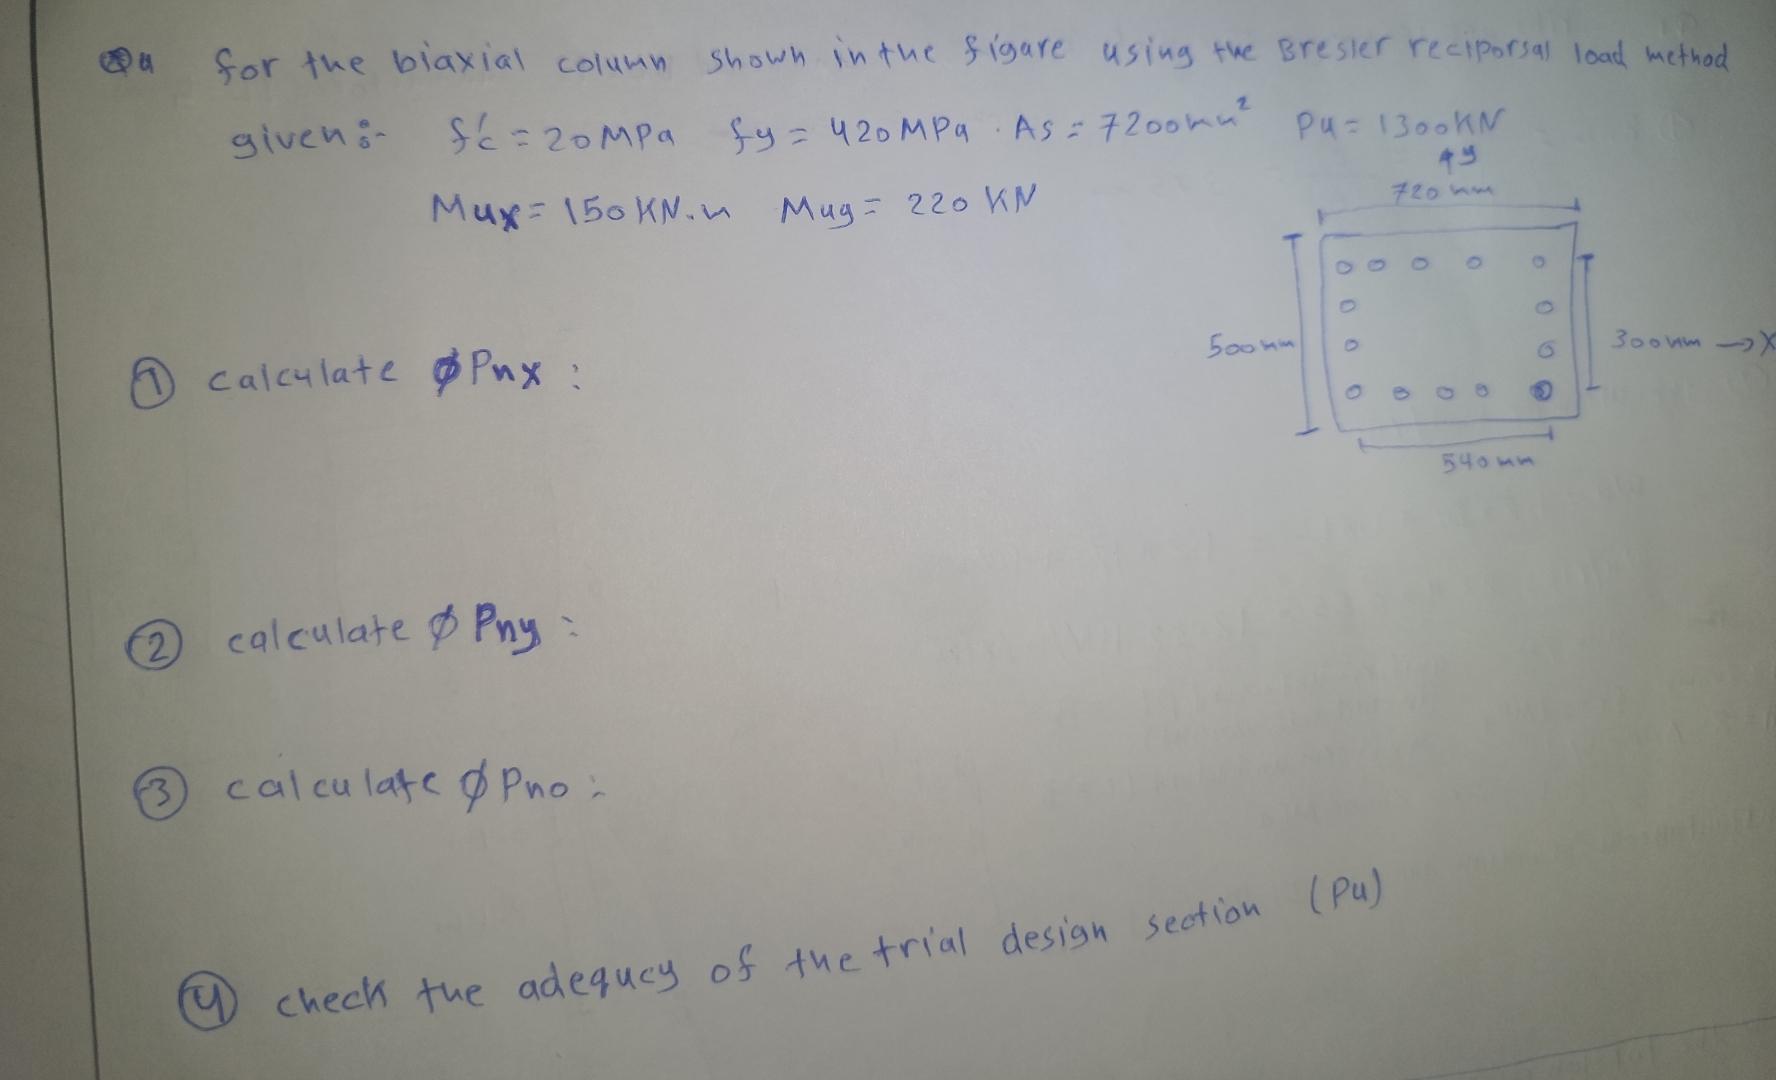 Q4 for the biaxial column shown in the figare using the Bresler reciporsal load method
given:- f'c = 20 MPa fy = 420 MPa . As = 7200mm² Pu = 1300KN
Mux = 150 KN.m Muy = 220 KN
y
720 mm
500mm
300mm → X
540mm
① calculate ϕ Pnx :
② calculate ϕ Pny :
③ calculate ϕ Pno :
④ check the adequcy of the trial design section (Pu)